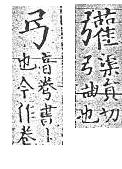 渠員切
弓曲也
弓
音卷書丨
也今作卷